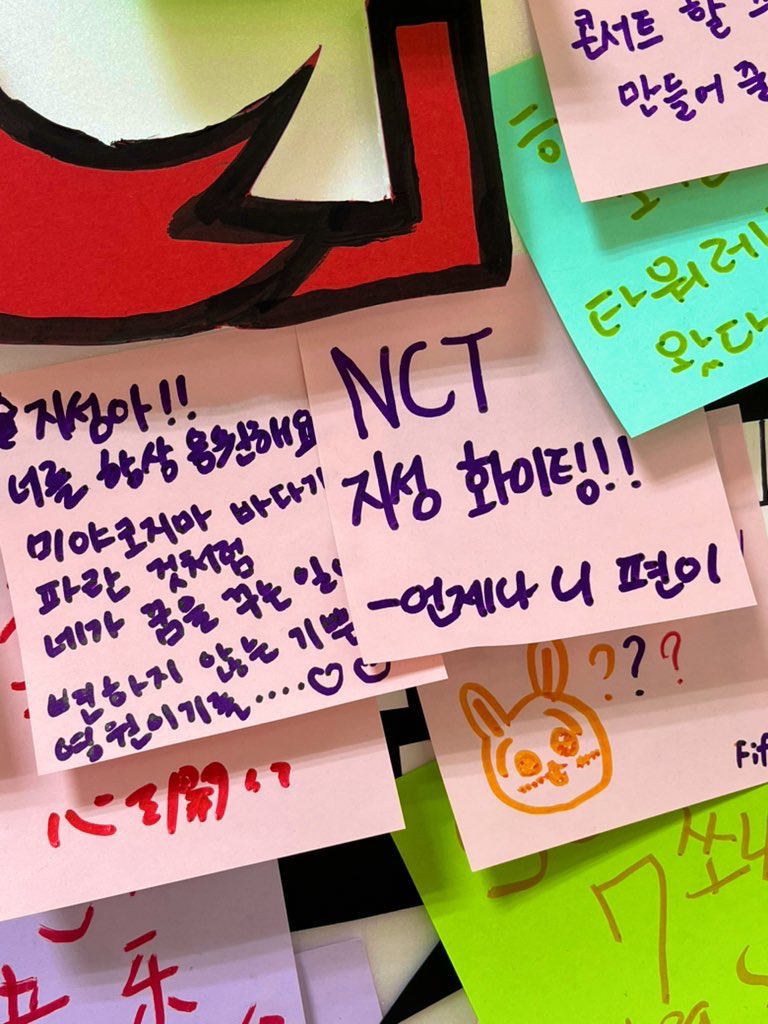 콘서트 할
만들어 줄
타워레
왔다
지성아!!
너를 항상 응원해요
미야코지마 바다가
파란 것처럼
네가 꿈을 꾸는 일이
변하지 않는 기쁨
영원이기를....♡♡
NCT
지성 화이팅!!
-언제나 니 편이
???
Fif
心 開
7
乐